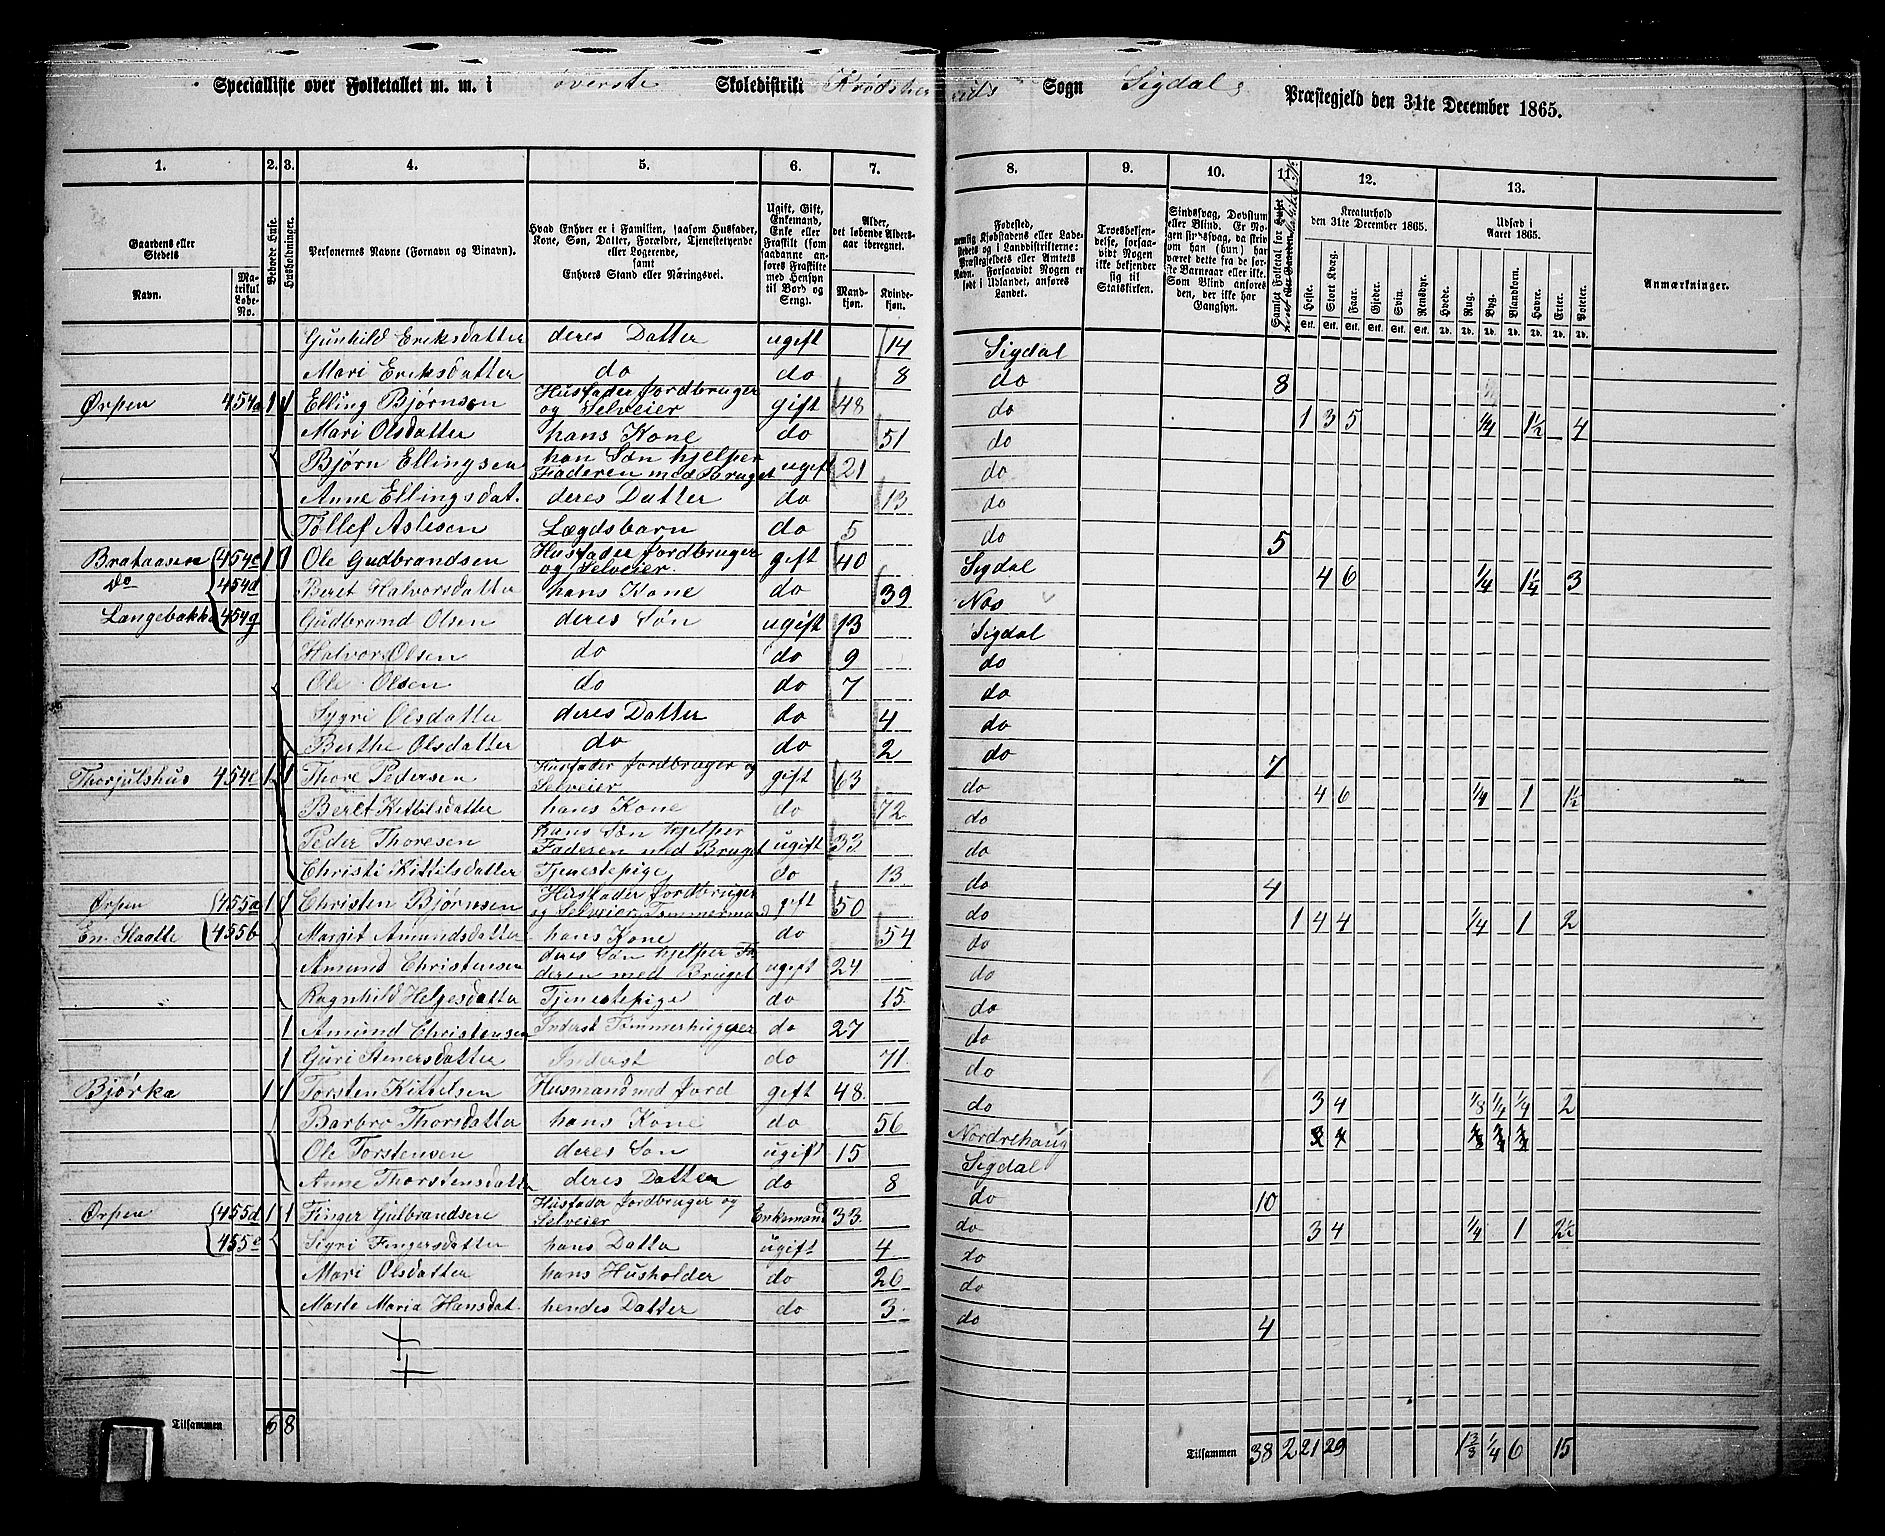 Specialliste over Folketallet m. m. i øverste Skoledistrikt Krødsherreds Sogn Sigdals Præstegjeld den 31te December 1865.
1. 2. 3. 4. 5. 6. 7. 8. 9. 10. 11. 12. 13.
Gaardens eller Stedets
Navn.
Matrikul Løbe-No.
Beboede Huse.
Husholdninger.
Personernes Navne (Fornavn og Binavn).
Hvad Enhver er i Familien, saasom Husfader, Kone, Søn, Datter, Forældre, Tjenestetyende eller Logerende, samt Enhvers Stand eller Næringsvei.
Ugift, Gift, Enkemand, Enke eller Fraskilt (saadanne anføres som Fraskilte med Hensyn til Bord og Seng).
Alder, det løbende Aldersaar iberegnet.
Mandkjøn. Kvindekjøn.
Fødested,
Troesbekjendelse, forsaavidt Nogen ikke bekjender sig til Statskirken.
Sindssvag, Døvstum eller Blind.
Kreaturhold den 31te December 1865.
Heste. Stort Kvæg. Faar. Gjeder. Svin. Rensdyr.
Udsæd i Aaret 1865.
Hvede. Rug. Byg. Blandkorn. Havre. Erter. Poteter.
Anmærkninger.
Gunhild Eriksdatter deres Datter ugift 14 Sigdal
Mari Eriksdatter do do 8 do 8
Ørpen 454a 1 1 Elling Bjørnsen Husfader Jordbruger og Selveier gift 48 do 1 3 5 1/4 1 1/2 4
Mari Olsdatter hans Kone do 51 do
Bjørn Ellingsen han Søn hjelper Faderen med Bruget ugift 21 do
Anne Ellingsdat. deres Datter do 13 do
Tollef Aslesen Lægdsbarn do 5 do 5
Brataasen 454c 1 1 Ole Gudbrandsen Husfader Jordbruger og Selveier gift 40 Sigdal 4 6 1/4 1 1/4 3
do 454d Beret Halvorsdatter hans Kone do 39 Næs
Langebakke 454g Gudbrand Olsen deres Søn ugift 13 Sigdal
Halvor Olsen do do 9 do
Ole Olsen do do 7 do
Sygri Olsdatter deres Datter do 4 do
Berthe Olsdatter do do 2 do 7
Thorjulshus 454e 1 1 Thore Pedersen Husfader Jordbruger og Selveier gift 63 do 4 6 1/4 1 1 1/2
Beret Kittilsdatter hans Kone do 72 do
Peder Thoresen hans Søn hjelper Faderen med Bruget ugift 33 do
Christi Kittelsdatter Tjenestepige do 13 do 4
Ørpen 455a 1 1 Christen Bjørnsen Husfader Jordbruger og Selveier Tømmermand gift 50 do 1 4 4 1/4 1 2
En Slaatte 455b Margit Amundsdatter hans Kone do 54 do
Amund Christensen deres Søn hjelper Faderen med Bruget ugift 24 do
Ragnhild Helgesdatter Tjenestepige do 15 do
1 Amund Christensen Inderst Tømmerhugger do 27 do
1 Guri Amersdatter Inderst do 71 do
Bjørka 1 1 Torsten Kittelsen Husmand med Jord gift 48 do 3 4 1/8 1/4 1/4 2
Barbro Thorsdatter hans Kone do 56 Nordrehaug
Ole Torstensen deres Søn ugift 15 Sigdal
Anne Thorstensdatter deres Datter do 8 do 10
Ørpen 455d 1 1 Finger Gulbrandsen Husfader Jordbruger og Selveier Enkemand 33 do 3 4 1/4 1 2 1/2
455e Sigri Fingersdatter hans Datter ugift 4 do
Mari Olsdatter hans Husholder do 26 do
Marte Maria Hansdat. hendes Datter do 3 do 4
Tilsammen 6 8
Tilsammen 38 2 21 29 1 3/8 1/4 6 15